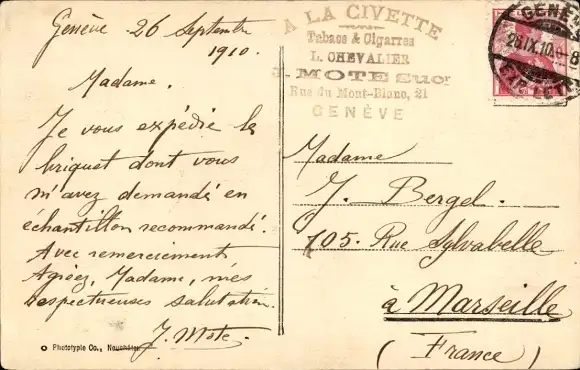 Genève 26 Septembre
1910.
Madame.
Je vous expédie le
briquet dont vous
m'avez demandé en
échantillon recommandé.
Avec remerciement
Agréez, Madame, mes
respectueuses salutation.
J. Mote.
Phototypie Co., Neuchâtel
A LA CIVETTE
Tabacs & Cigarres
L. CHEVALIER
J. MOTE Sucr
Rue du Mont-Blanc, 21
GENÈVE
GENÈVE
26.IX.10.-8
EXP. LETT.
Madame
J. Bergel.
105. Rue Sylvabelle
à Marseille
(France)